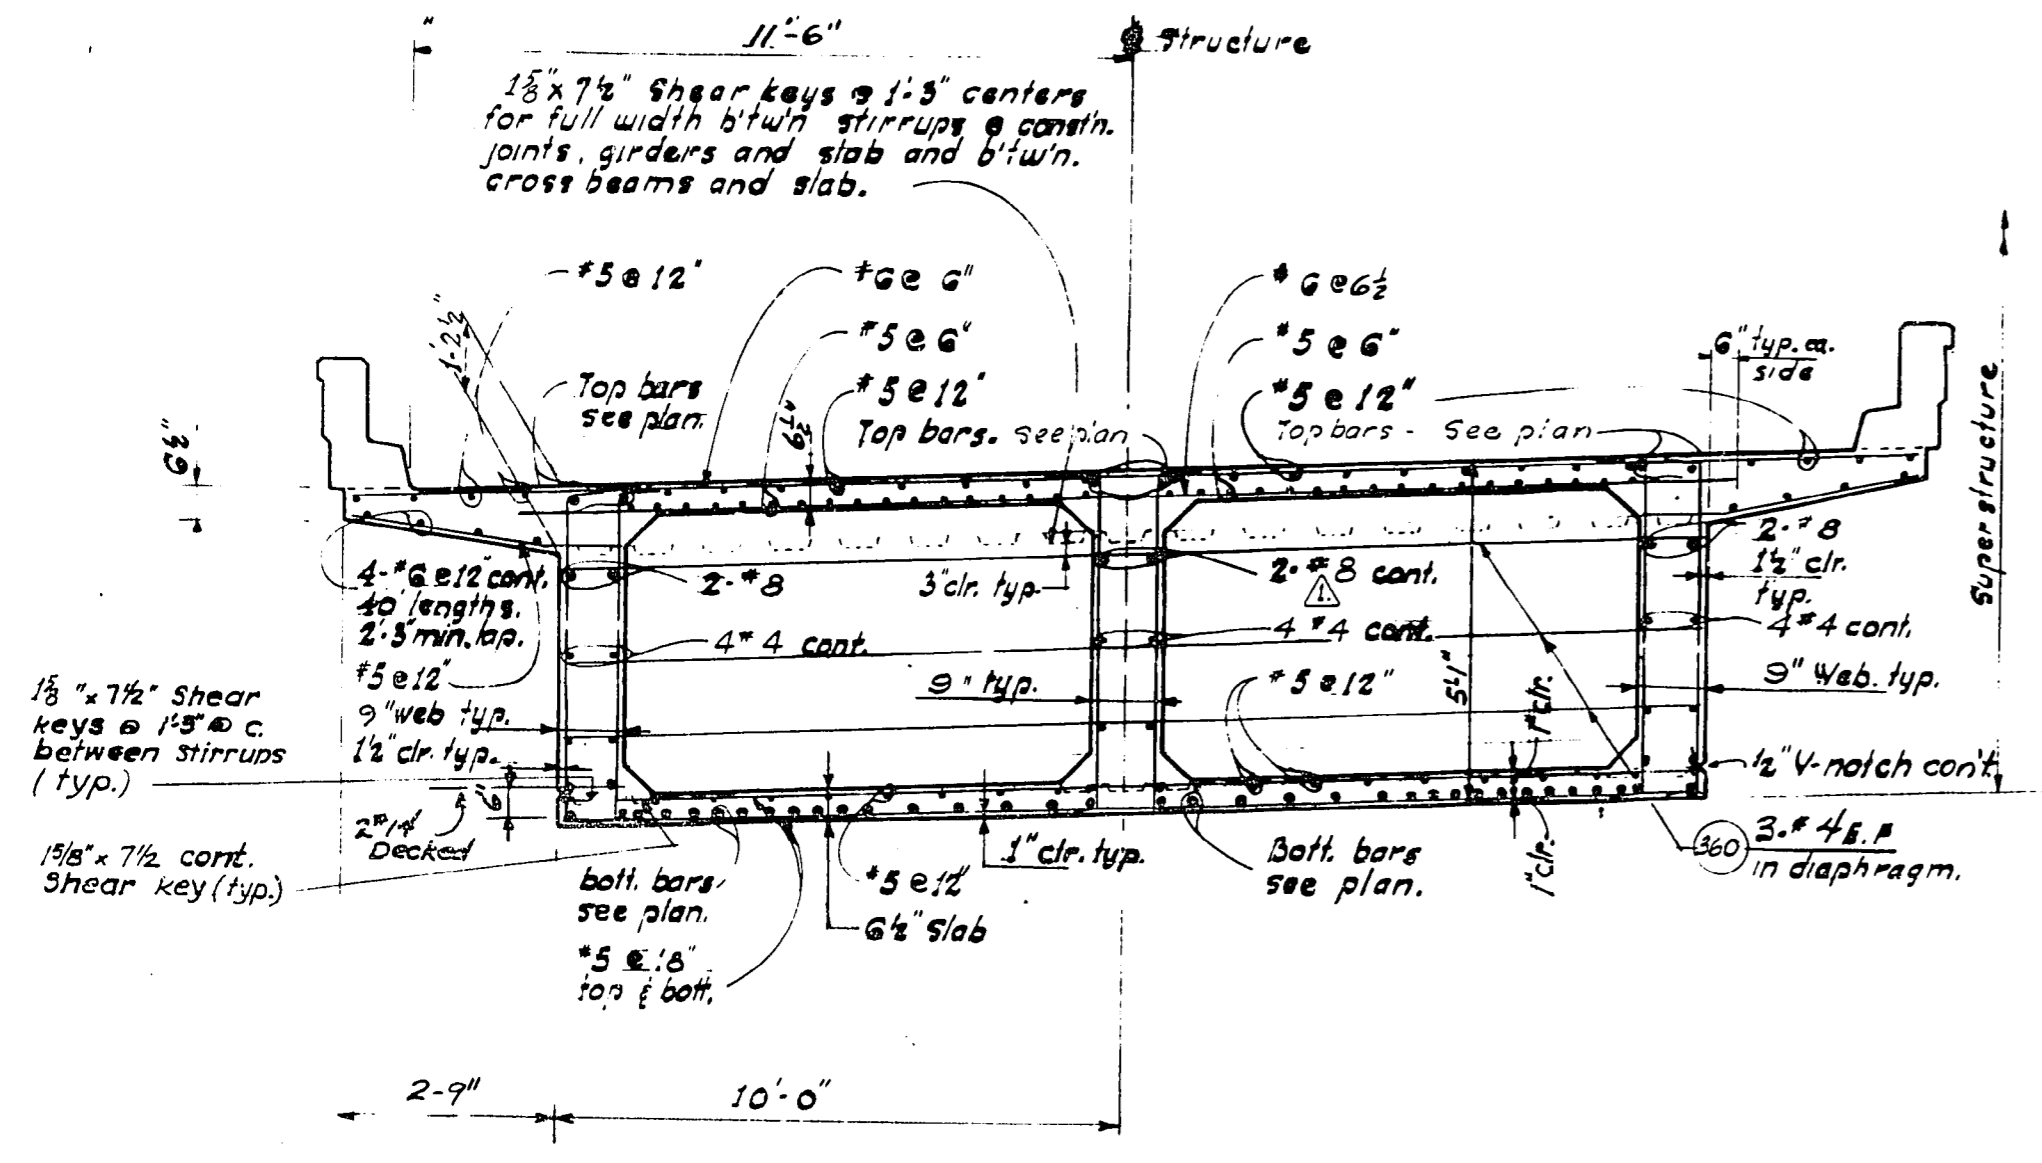 11'-6"
Structure
1⅝" x 7½" Shear keys @ 1'-3" centers
for full width b'tw'n stirrups @ const'n.
joints, girders and slab and b'tw'n.
cross beams and slab.
#5 @ 12"
#6 @ 6"
#6 @ 6½
1'-2½"
#5 @ 6"
#5 @ 6"
6" typ. ea.
side
Top bars
see plan.
#5 @ 12"
#5 @ 12"
Top bars. see plan
Top bars - See plan
6½"
6½"
Superstructure
4-#6 @ 12" cont.
40' lengths.
2'-3" min. lap.
#5 @ 12"
2-#8
3" clr. typ.
2-#8 cont.
1.
2-#8
1½" clr.
typ.
4#4 cont.
4#4 cont.
4#4 cont.
9" web typ.
1½" clr. typ.
9" typ.
#5 @ 12"
1" clr.
9" Web. typ.
1⅝" x 7½" Shear
keys @ 1'-3" @ c.
between stirrups
(typ.)
6"
½" V-notch con't.
Decked
1⅝" x 7½ cont.
Shear key (typ.)
1" clr. typ.
Bott. bars
see plan.
1" clr.
360
3-#4 E.F
in diaphragm.
bott. bars
see plan.
#5 @ 12"
6½" Slab
#5 @ 18"
top & bott.
2-9"
10'-0"